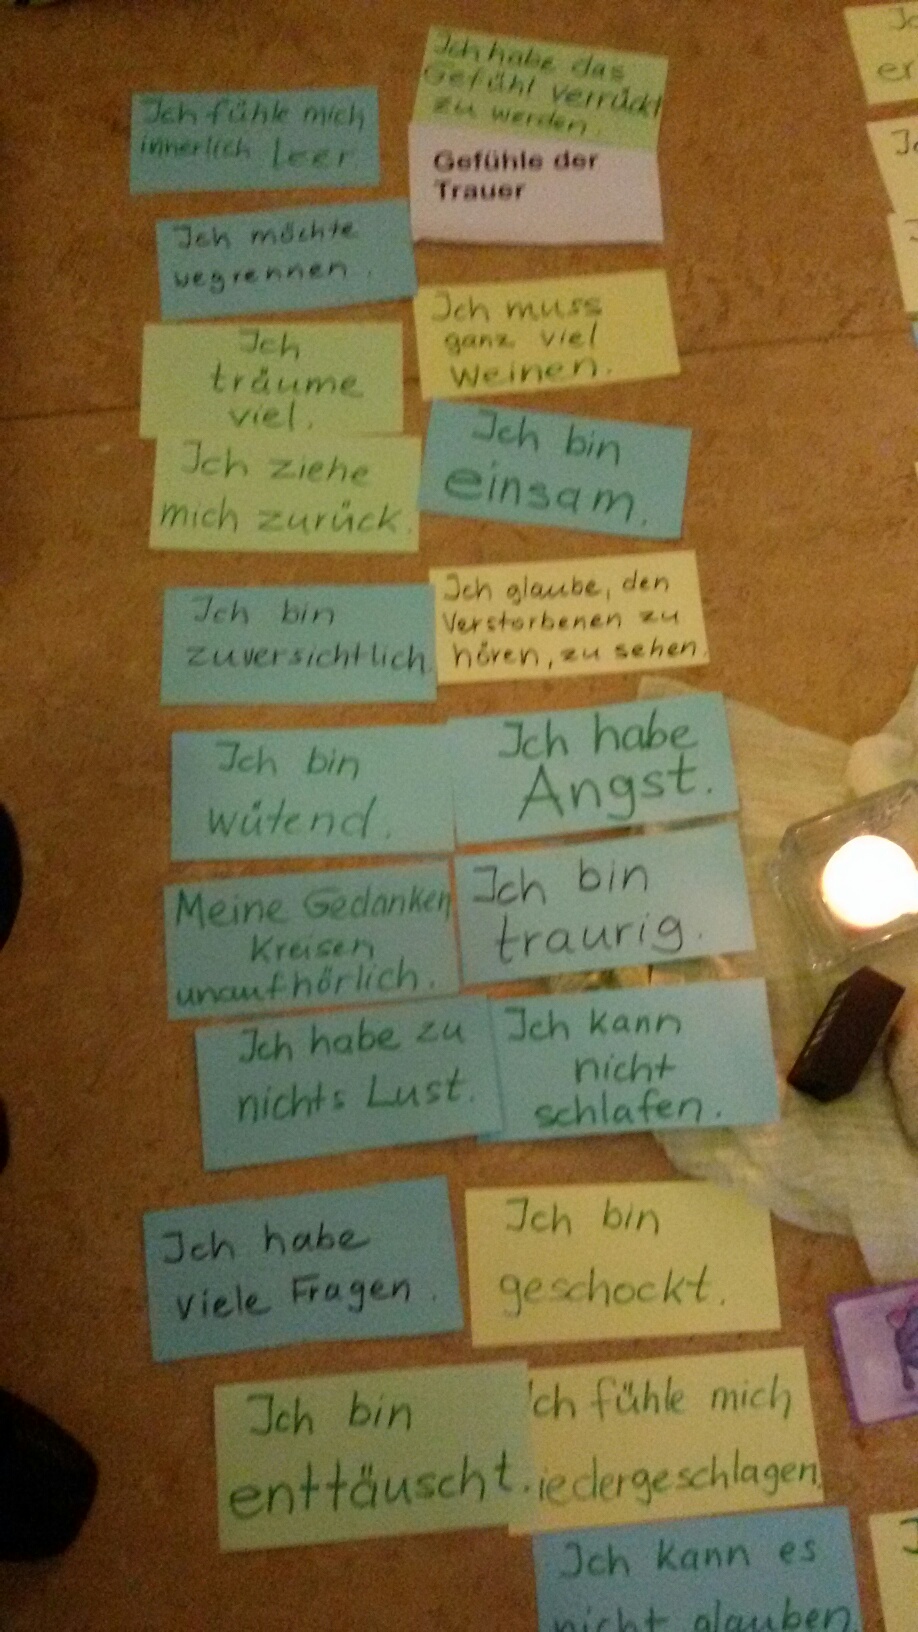 Ich habe das
Gefühl verrückt
zu werden.
Gefühle der
Trauer
Ich fühle mich
innerlich leer
Ich möchte
wegrennen.
Ich muss
ganz viel
weinen.
Ich
träume
viel.
Ich bin
einsam.
Ich ziehe
mich zurück.
Ich glaube, den
Verstorbenen zu
hören, zu sehen.
Ich bin
zuversichtlich.
Ich habe
Angst.
Ich bin
wütend.
Ich bin
traurig.
Meine Gedanken
kreisen
unaufhörlich.
Ich kann
nicht
schlafen.
Ich habe zu
nichts Lust.
Ich habe
viele Fragen.
Ich bin
geschockt.
Ich bin
enttäuscht.
ch fühle mich
iedergeschlagen.
Ich kann es
nicht glauben.